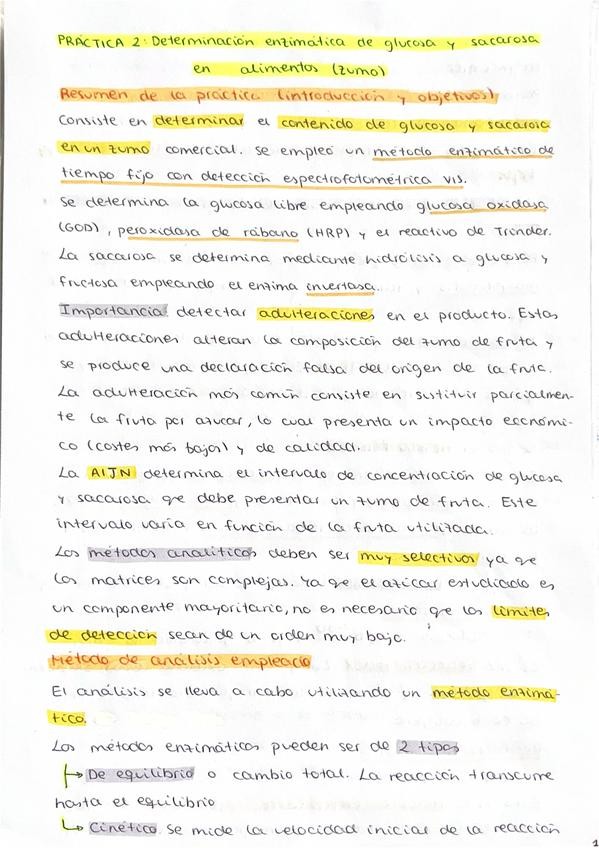 PRÁCTICA 2: Determinación enzimática de glucosa y sacarosa
en alimentos (zumo)
Resumen de la práctica (introducción y objetivos)
Consiste en determinar el contenido de glucosa y sacarosa
en un zumo comercial. Se empleó un método enzimático de
tiempo fijo con detección espectrofotométrica vis.
Se determina la glucosa libre empleando glucosa oxidasa
(GOD), peroxidasa de rábano (HRP) y el reactivo de Trinder.
La sacarosa se determina mediante hidrólisis a glucosa y
fructosa empleando el enzima invertasa.
Importancia: detectar adulteraciones en el producto. Estas
adulteraciones alteran la composición del zumo de fruta y
se produce una declaración falsa del origen de la fruta.
La adulteración más común consiste en sustituir parcialmen-
te la fruta por azucar, lo cual presenta un impacto económi-
co (costes más bajos) y de calidad.
La AIJN determina el intervalo de concentración de glucosa
y sacarosa que debe presentar un zumo de fruta. Este
intervalo varía en función de la fruta utilizada.
Los métodos analíticos deben ser muy selectivos ya que
las matrices son complejas. Ya que el azúcar estudiado es
un componente mayoritario, no es necesario que los límites
de detección sean de un orden muy bajo.
Método de análisis empleado
El análisis se lleva a cabo utilizando un método enzimá-
tico.
Los métodos enzimáticos pueden ser de 2 tipos
↳ De equilibrio o cambio total. La reacción transcurre
hasta el equilibrio
↳ Cinético. Se mide la velocidad inicial de la reacción
1